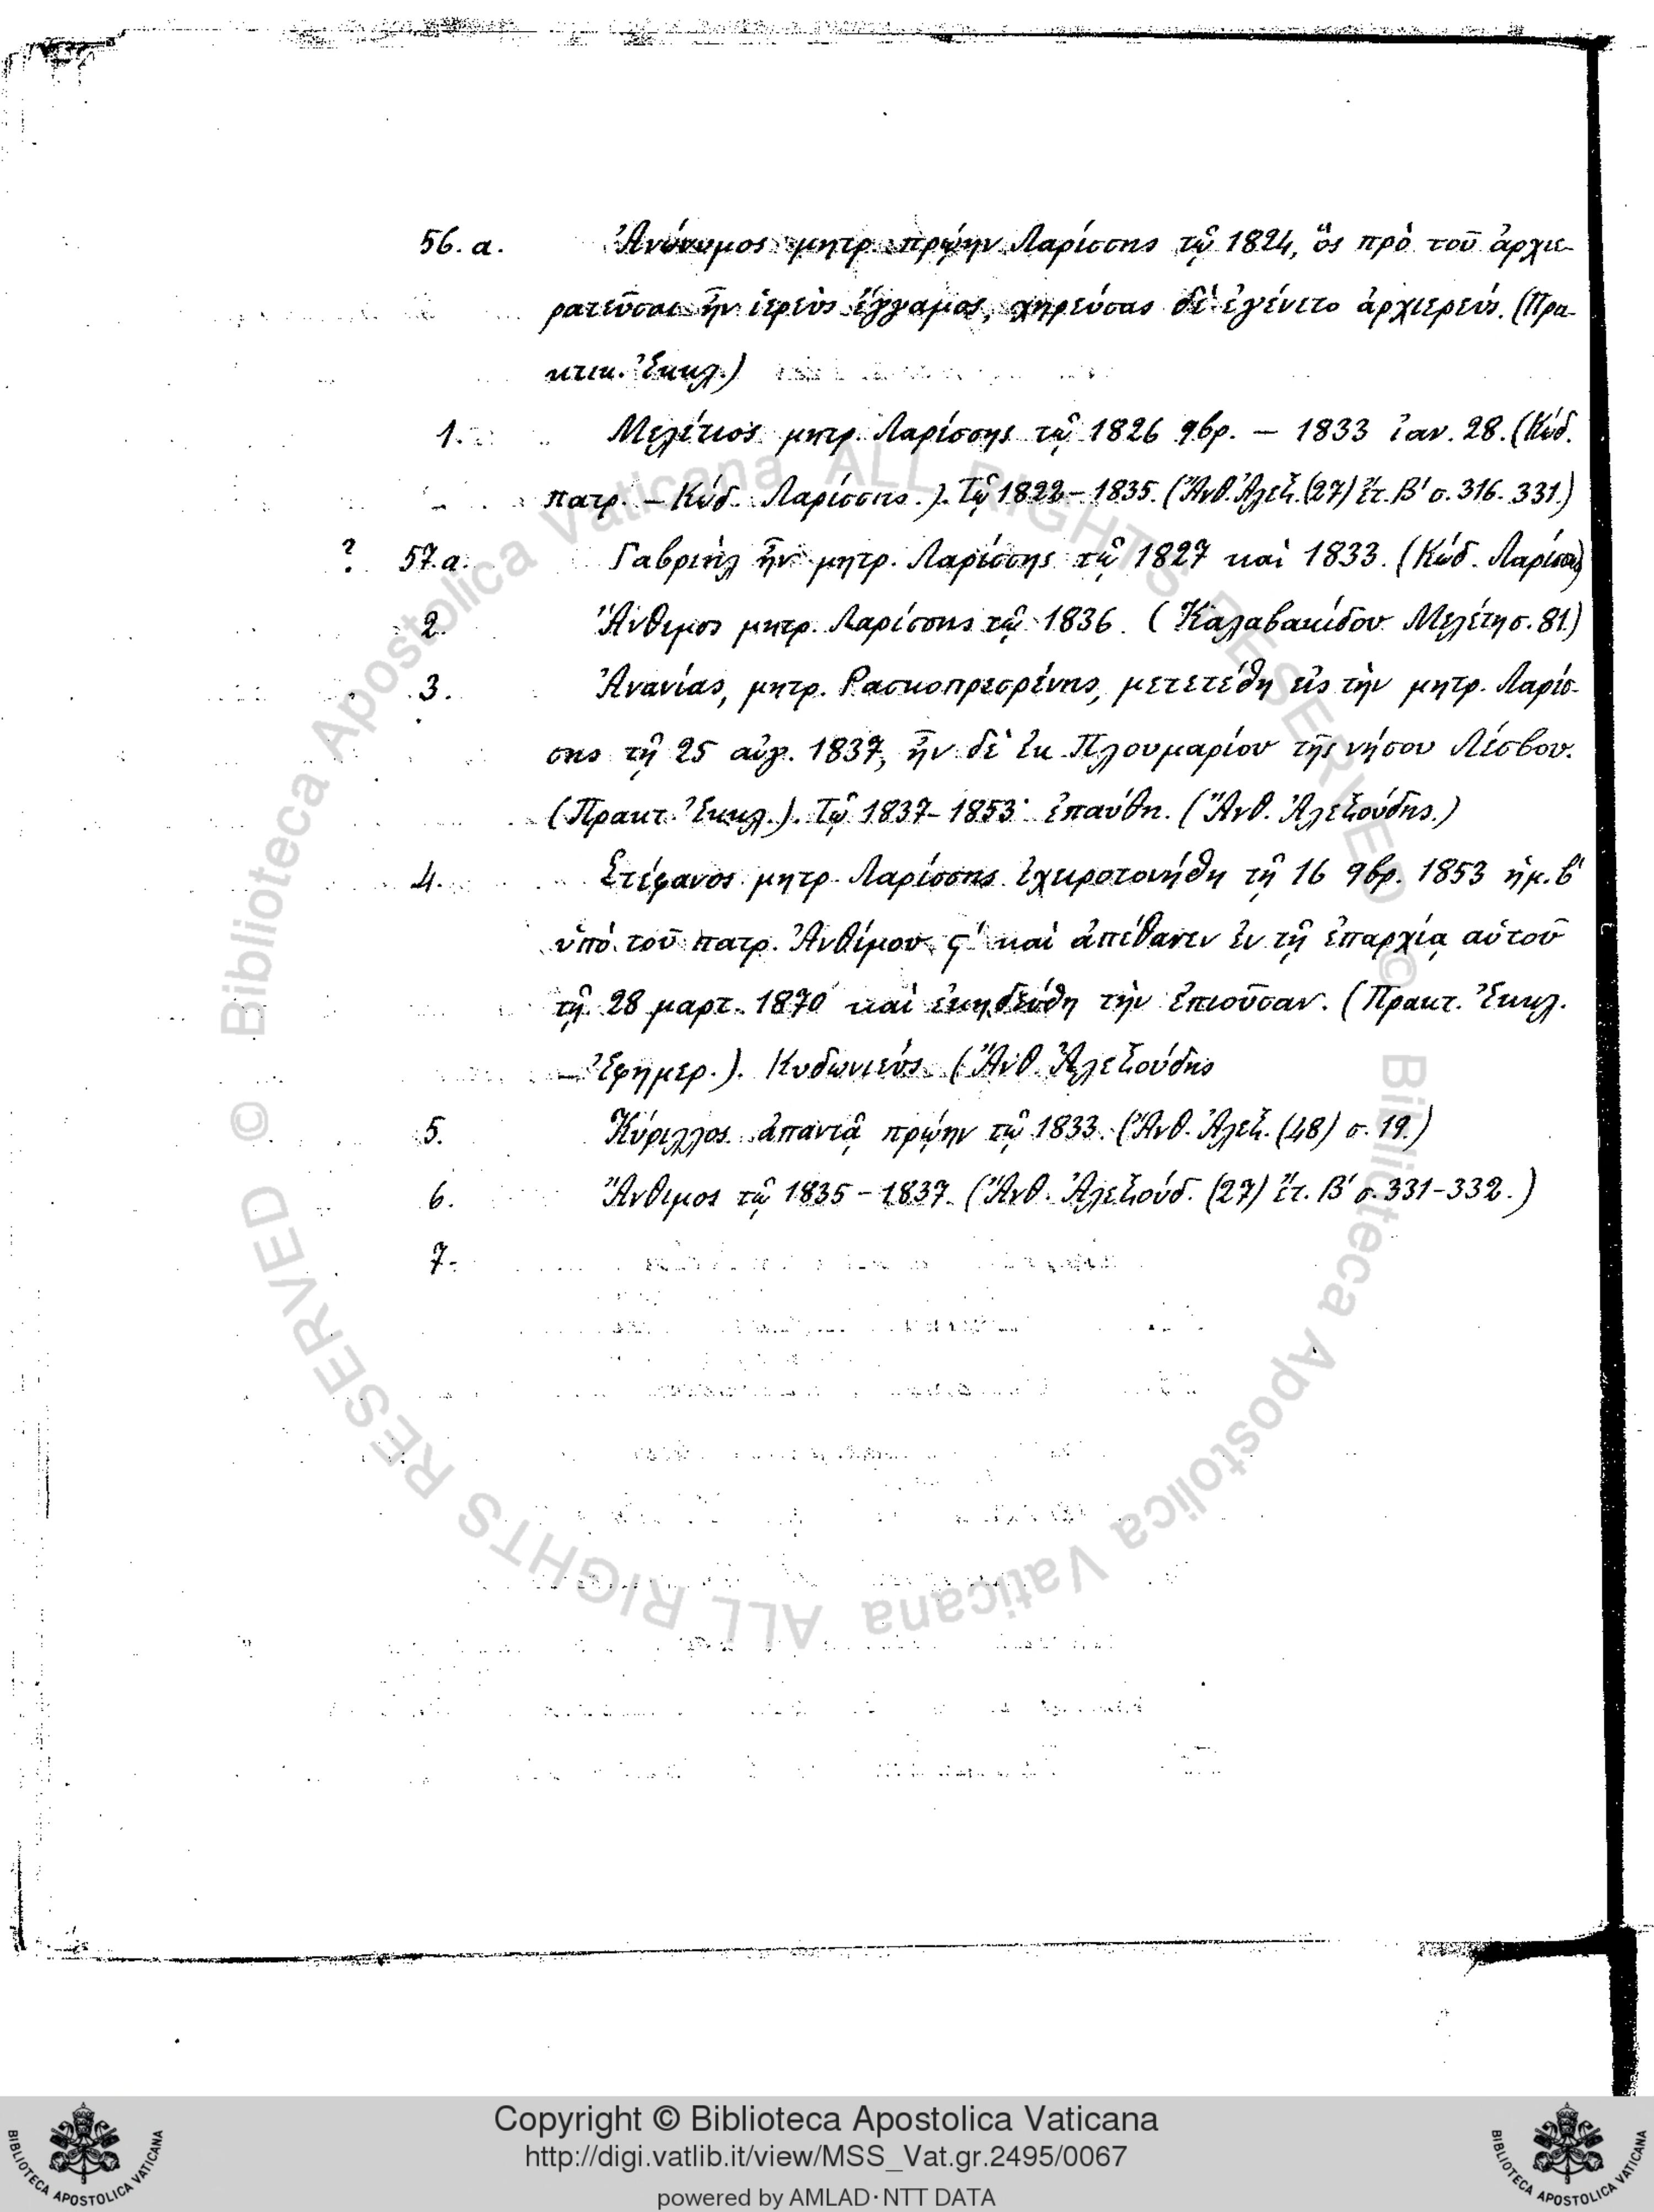 56.α. Ἀνώνυμος μητρ. πρῴην Λαρίσσης τῷ 1824, ὃς πρὸ τοῦ ἀρχιε-
ρατεῦσαι ἦν ἱερεὺς ἔγγαμος, χηρεύσας δὲ ἐγένετο ἀρχιερεύς. (Πρα-
κτικ. Ἐκκλ.)
1. Μελέτιος μητρ. Λαρίσσης τῷ 1826 9βρ. – 1833 ἰαν. 28. (Κώδ.
πατρ. – Κώδ. Λαρίσσης.). Τῷ 1822–1835. (Ἄνθ. Ἀλεξ. (27) ἔτ. Β′ σ. 316. 331.)
? 57.α. Γαβριὴλ ἦν μητρ. Λαρίσσης τῷ 1827 καὶ 1833. (Κώδ. Λαρίσσης)
2. Ἄνθιμος μητρ. Λαρίσσης τῷ 1836. (Καλαβακίδου Μελέτη σ. 81.)
3. Ἀνανίας, μητρ. Ρασκοπρεσρένης, μετετέθη εἰς τὴν μητρ. Λαρίσ-
σης τῇ 25 αὐγ. 1837, ἦν δὲ ἐκ Πλουμαρίου τῆς νήσου Λέσβου.
(Πρακτ. Ἐκκλ.). Τῷ 1837–1853· ἐπαύθη. (Ἄνθ. Ἀλεξούδης.)
4. Στέφανος μητρ. Λαρίσσης ἐχειροτονήθη τῇ 16 9βρ. 1853 ἡμ. β′
ὑπὸ τοῦ πατρ. Ἀνθίμου ς′ καὶ ἀπέθανεν ἐν τῇ ἐπαρχίᾳ αὐτοῦ
τῇ 28 μαρτ. 1870 καὶ ἐκηδεύθη τὴν ἐπιοῦσαν. (Πρακτ. Ἐκκλ.
– Ἐφημερ.). Κυδωνιεύς. (Ἄνθ. Ἀλεξούδης
5. Κύριλλος ἀπαντᾷ πρῴην τῷ 1833. (Ἄνθ. Ἀλεξ. (48) σ. 19.)
6. Ἄνθιμος τῷ 1835–1837. (Ἄνθ. Ἀλεξούδ. (27) ἔτ. Β′ σ. 331–332.)
7.
© Biblioteca Apostolica Vaticana ALL RIGHTS RESERVED © Biblioteca Apostolica Vaticana ALL RIGHTS RESERVED
Copyright © Biblioteca Apostolica Vaticana
http://digi.vatlib.it/view/MSS_Vat.gr.2495/0067
powered by AMLAD·NTT DATA
BIBLIOTECA APOSTOLICA VATICANA
BIBLIOTECA APOSTOLICA VATICANA